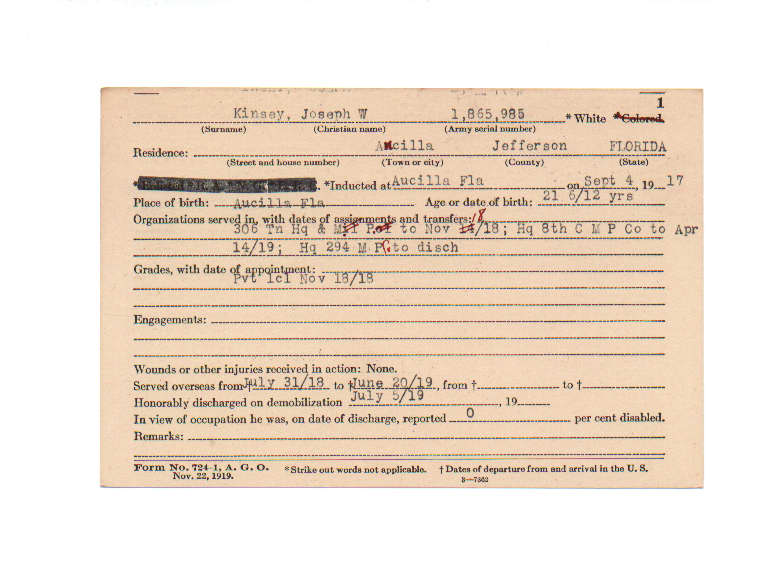 1
Kinsey, Joseph W 1,865,985 * White *Colored.
(Surname) (Christian name) (Army serial number)
Residence: Aucilla Jefferson FLORIDA
(Street and house number) (Town or city) (County) (State)
*Inducted at Aucilla Fla on Sept 4, 1917
Place of birth: Aucilla Fla Age or date of birth: 21 6/12 yrs
Organizations served in, with dates of assignments and transfers: 18
306 Tn Hq & to Nov 14/18; Hq 8th C M P Co to Apr
14/19; Hq 294 M.P.C. to disch
Grades, with date of appointment:
Pvt 1cl Nov 18/18
Engagements:
Wounds or other injuries received in action: None.
Served overseas from † July 31/18 to † June 20/19, from † to †
Honorably discharged on demobilization July 5/19, 19
In view of occupation he was, on date of discharge, reported 0 per cent disabled.
Remarks:
Form No. 724-1, A. G. O. *Strike out words not applicable. † Dates of departure from and arrival in the U. S.
Nov. 22, 1919. 3—7302